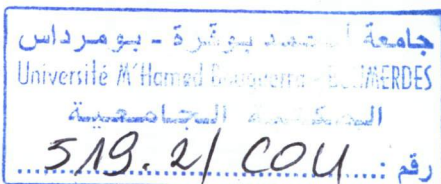 جامعة أمحمد بوقرة - بومرداس
Université M'Hamed Bougarra - BOUMERDES
المكتبة الجامعية
رقم : 519.2/ COU